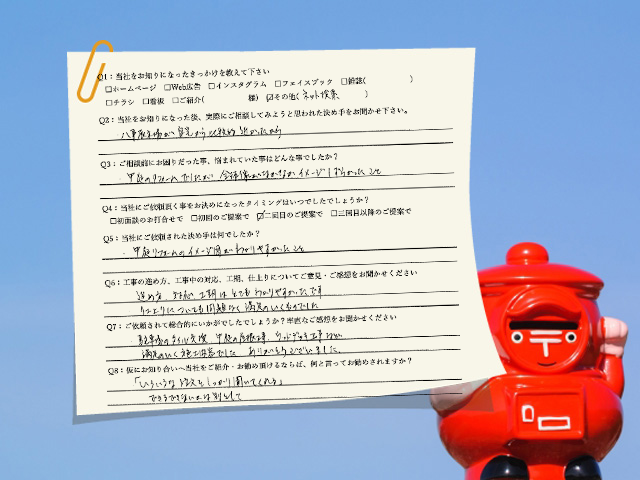 Q1：当社をお知りになったきっかけを教えて下さい
□ホームページ □Web広告 □インスタグラム □フェイスブック □雑誌( )
□チラシ □看板 □ご紹介( 様) ☑その他( ネット検索 )
Q2：当社をお知りになった後、実際にご相談してみようと思われた決め手をお聞かせ下さい。
Q3：ご相談前にお困りだった事、悩まれていた事はどんな事でしたか？
Q4：当社にご依頼頂く事をお決めになったタイミングはいつでしたでしょうか？
□初面談のお打合せで □初回のご提案で ☑二回目のご提案で □三回目以降のご提案で
Q5：当社にご依頼された決め手は何でしたか？
・中庭リフォームのイメージ図がわかりやすかったこと
Q6：工事の進め方、工事中の対応、工期、仕上りについてご意見・ご感想をお聞かせください
進め方 対応 工期はとてもわかりやすかったです
仕上りについても問題なく満足のいくものでした
Q7：ご依頼されて総合的にいかがでしたでしょうか？率直なご感想をお聞かせください
満足のいく施工内容でした ありがとうございました。
Q8：仮にお知り合いへ当社をご紹介・お勧め頂けるならば、何と言ってお勧めされますか？
「いろいろな 考えをしっかり聞いてくれる」
できるできないは別として
〒